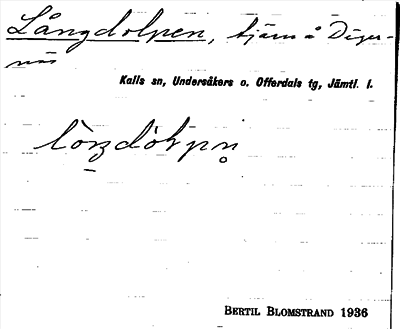 Långdolpen, tjärn å Diger-
näs
Kalls sn, Undersåkers o. Offerdals tg, Jämtl. l.
BERTIL BLOMSTRAND 1936